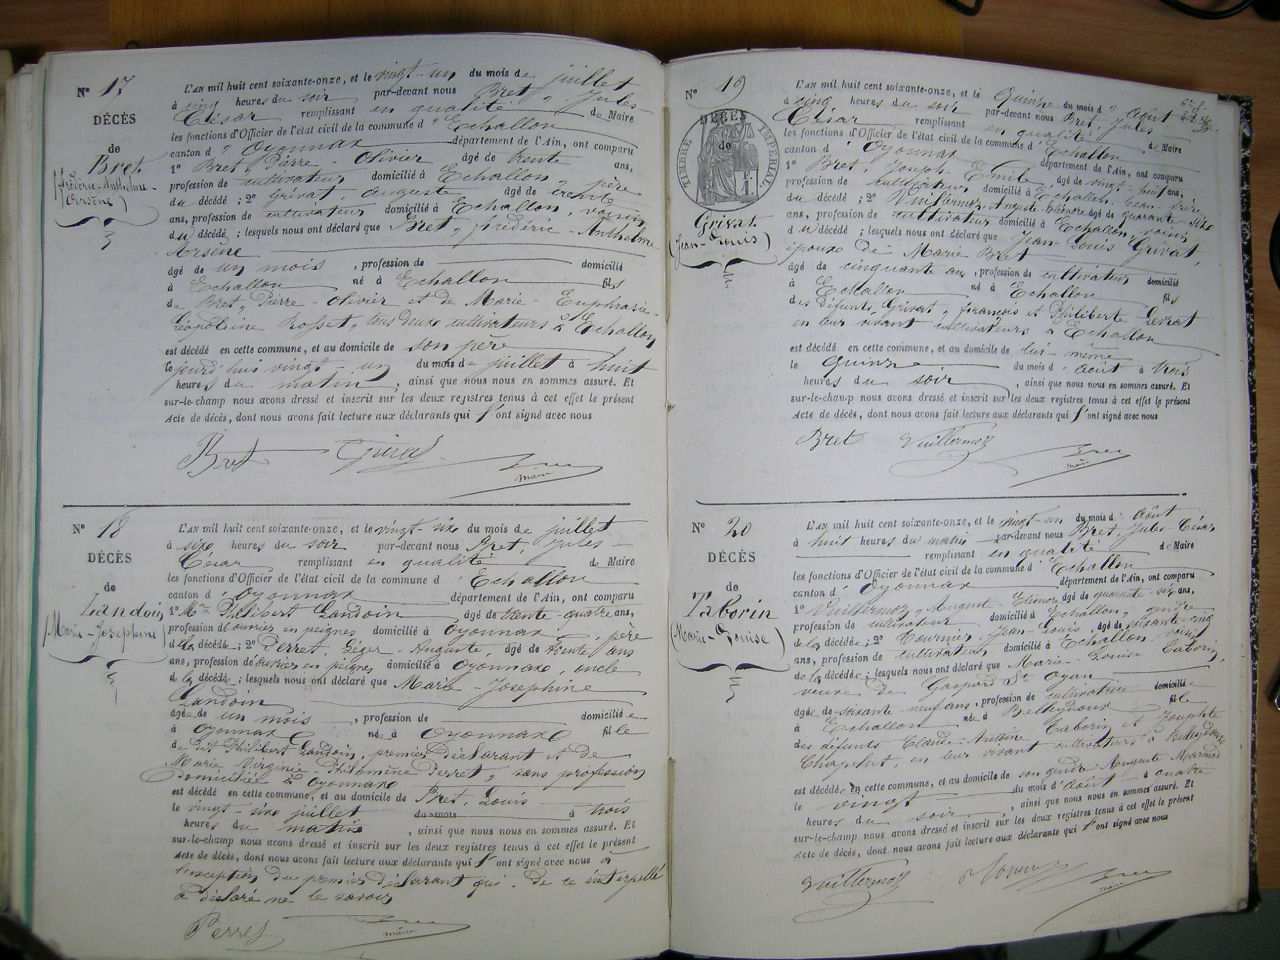 N° 17
DÉCÈS
de
Bret
(Frédéric-Anthelme-
Arsène)
L'AN mil huit cent soixante-onze, et le vingt-un du mois de juillet
à cinq heures du soir par-devant nous Bret, Jules-
César remplissant en qualité de Maire
les fonctions d'Officier de l'état civil de la commune d'Echallon
canton d'Oyonnax département de l'Ain, ont comparu
1° Bret, Pierre-Olivier âgé de trente ans,
profession de cultivateur domicilié à Echallon, père
du décédé ; 2° Grivat, Auguste âgé de trente
ans, profession de cultivateur domicilié à Echallon, voisin
du décédé ; lesquels nous ont déclaré que Bret, frédéric-Anthelme
Arsène
âgé de un mois , profession de domicilié
à Echallon né à Echallon fils
de Bret, Pierre-Olivier et de Marie-Euphrasie-
Léopoldine Rosset, tous deux cultivateurs à Echallon
est décédé en cette commune, et au domicile de son père
le jourd'hui vingt-un du mois de juillet à huit
heures du matin ; ainsi que nous nous en sommes assuré. Et
sur-le-champ nous avons dressé et inscrit sur les deux registres tenus à cet effet le présent
Acte de décès, dont nous avons fait lecture aux déclarants qui l'ont signé avec nous
Bret
maire
N° 18
DÉCÈS
de
Landoin
(Marie-Josephine)
L'AN mil huit cent soixante-onze, et le vingt-six du mois de juillet
à six heures du soir par-devant nous Bret, Jules-
César remplissant en qualité de Maire
les fonctions d'Officier de l'état civil de la commune d'Echallon
canton d'Oyonnax département de l'Ain, ont comparu
1° Philibert Landoin âgé de trente-quatre ans,
profession d'ouvrier en peignes domicilié à Oyonnax, père
de la décédée ; 2° Perret, Léger-Auguste, âgé de trente ans
ans, profession d'ouvrier en peignes domicilié à Oyonnax oncle
de la décédée ; lesquels nous ont déclaré que Marie-Josephine
Landoin
âgée de un mois , profession de domiciliée
à Oyonnax née à Oyonnax fille
de dit Philibert Landoin, premier déclarant et de
Marie Virginie-Philomine Perret, sans profession
domiciliée à Oyonnax
est décédée en cette commune, et au domicile de Bret, Louis
le vingt-six juillet du mois à trois
heures du matin , ainsi que nous nous en sommes assuré. Et
sur-le-champ nous avons dressé et inscrit sur les deux registres tenus à cet effet le présent
Acte de décès, dont nous avons fait lecture aux déclarants qui l'ont signé avec nous à
l'exception du premier déclarant qui, de ce interpellé
a déclaré ne le savoir
Perret
maire
N° 19
DÉCÈS
de
TIMBRE IMPÉRIAL
Grivat
(Jean-Louis)
L'AN mil huit cent soixante-onze, et le quinze du mois d'Août
à cinq heures du soir par-devant nous Bret, Jules
César remplissant en qualité de Maire
les fonctions d'Officier de l'état civil de la commune d'Echallon
canton d'Oyonnax département de l'Ain, ont comparu
1° Bret, Joseph Emile âgé de vingt-huit ans,
profession de cultivateur domicilié à Echallon,
du décédé ; 2° Vuillermoz, Auguste-Elémore âgé de quarante-six
ans, profession de cultivateur domicilié à Echallon, voisin
du décédé ; lesquels nous ont déclaré que Jean-Louis Grivat,
époux de Marie Bret
âgé de cinquante ans, profession de cultivateur domicilié
à Echallon né à Echallon fils
des défunts Grivat, françois et Philiberte
en leur vivant cultivateurs à Echallon
est décédé en cette commune, et au domicile de lui-même
le quinze du mois d'Août à trois
heures du soir , ainsi que nous nous en sommes assuré. Et
sur-le-champ nous avons dressé et inscrit sur les deux registres tenus à cet effet le présent
Acte de décès, dont nous avons fait lecture aux déclarants qui l'ont signé avec nous
Bret Vuillermoz
maire
N° 20
DÉCÈS
de
Taborin
(Marie-Louise)
L'AN mil huit cent soixante-onze, et le vingt-un du mois d'Août
à huit heures du matin par-devant nous Bret, Jules César
remplissant en qualité de Maire
les fonctions d'Officier de l'état civil de la commune d'Echallon
canton d'Oyonnax département de l'Ain, ont comparu
1° Vuillermoz, Auguste-Elémore âgé de quarante-six ans,
profession de cultivateur domicilié à Echallon,
de la décédée ; 2° Tournier, Jean-Louis, âgé de
ans, profession de cultivateur domicilié à Echallon voisin
de la décédée ; lesquels nous ont déclaré que Marie-Louise Taborin,
veuve de Gaspard St Oyan
âgée de soixante-neuf ans, profession de cultivatrice domiciliée
à Echallon née à Belleydoux fille
des défunts Claude-Antoine Taborin et Josephte
Chapelut, en leur vivant cultivateurs à Belleydoux
est décédée en cette commune, et au domicile de son gendre Auguste
le vingt du mois d'Août à quatre
heures du soir , ainsi que nous nous en sommes assuré. Et
sur-le-champ nous avons dressé et inscrit sur les deux registres tenus à cet effet le présent
Acte de décès, dont nous avons fait lecture aux déclarants qui l'ont signé avec nous
Vuillermoz
maire